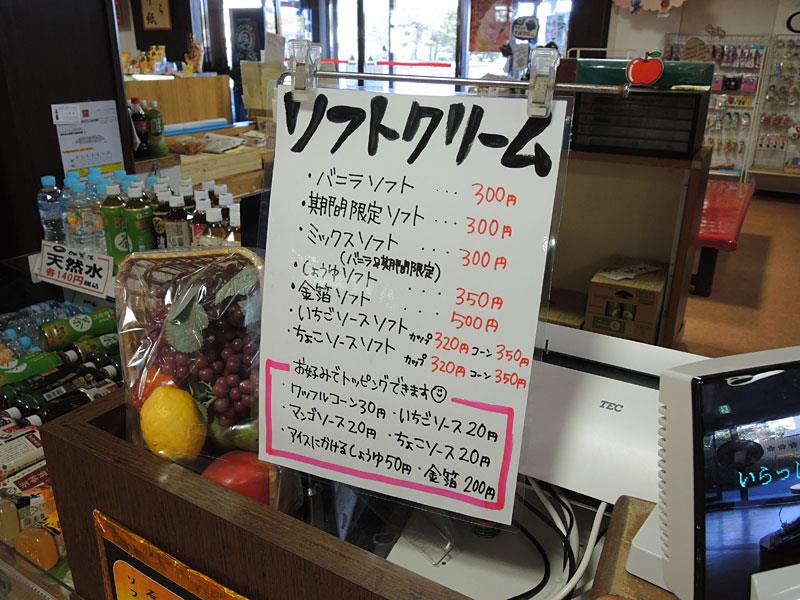 ソフトクリーム
・バニラソフト ･･･ 300円
・期間限定ソフト ･･･ 300円
・ミックスソフト ･･･ 300円
(バニラ又期間限定)
・しょうゆソフト ･･･ 350円
・金箔ソフト ･･･ 500円
・いちごソースソフト カップ 320円 コーン 350円
・ちょこソースソフト カップ 320円 コーン 350円
お好みでトッピングできます
・ワッフルコーン30円 ・いちごソース20円
・マンゴソース20円 ・ちょこソース20円
・アイスにかけるしょうゆ50円 ・金箔 200円
天然水
各140円税込
TEC
いらっし